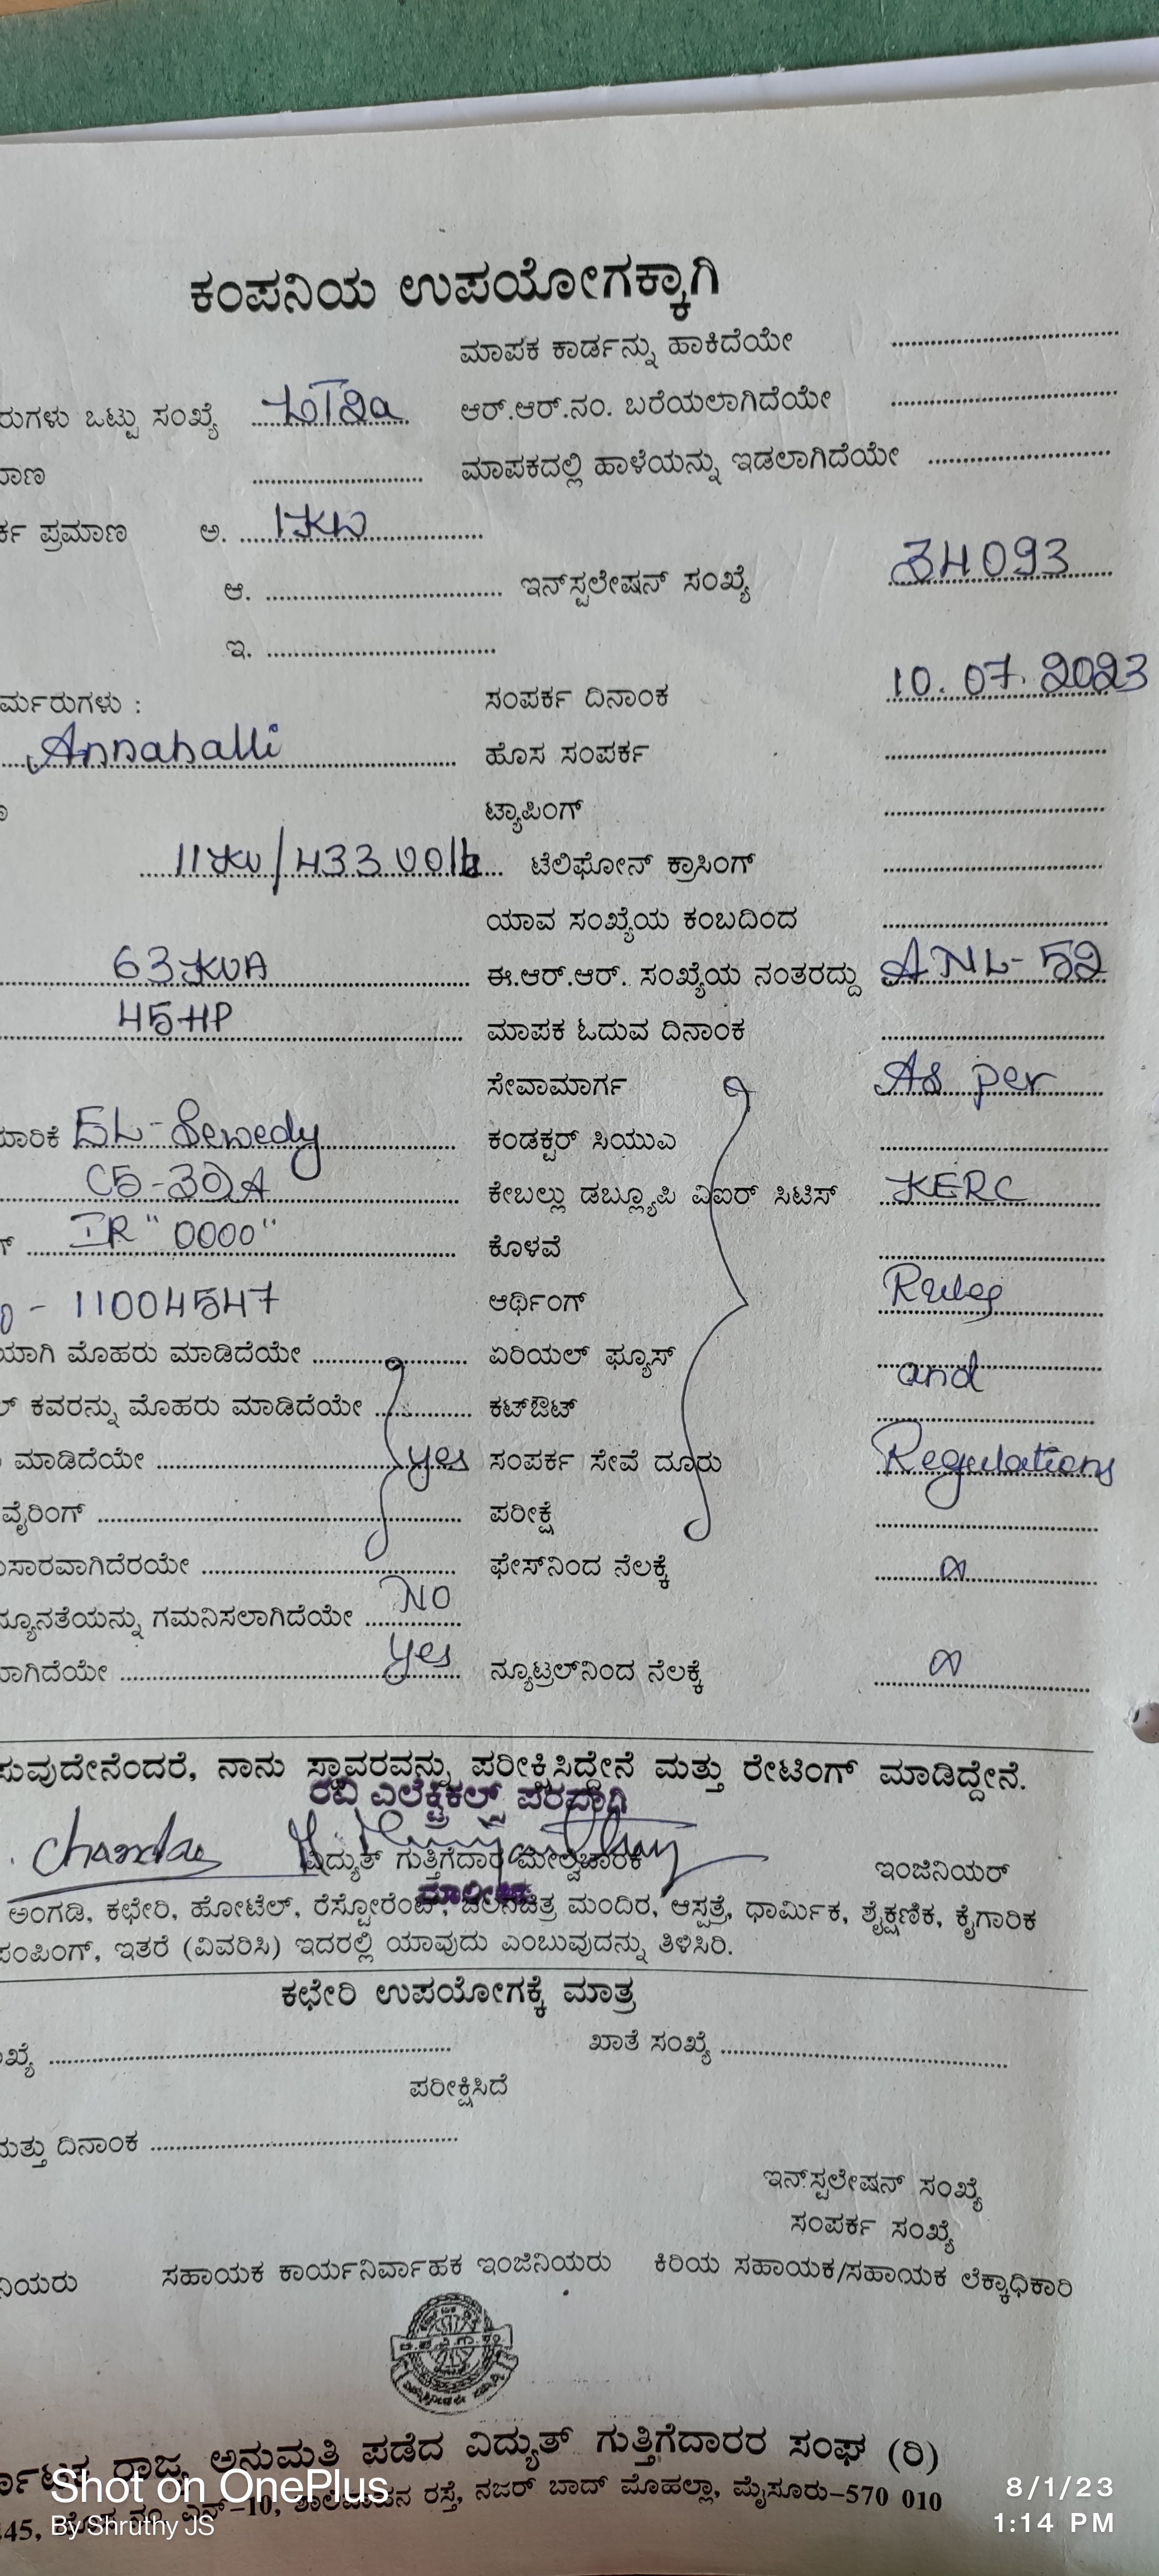 ಕಂಪನಿಯ ಉಪಯೋಗಕ್ಕಾಗಿ
ಮಾಪಕ ಕಾರ್ಡನ್ನು ಹಾಕಿದೆಯೇ
ರುಗಳು ಒಟ್ಟು ಸಂಖ್ಯೆ ಆರ್.ಆರ್.ನಂ. ಬರೆಯಲಾಗಿದೆಯೇ
ಮಾಣ ಮಾಪಕದಲ್ಲಿ ಹಾಳೆಯನ್ನು ಇಡಲಾಗಿದೆಯೇ
ರ್ಕ ಪ್ರಮಾಣ ಅ. 1KW
ಆ. ಇನ್‌ಸ್ಟಲೇಷನ್ ಸಂಖ್ಯೆ 34093
ಇ.
ರ್ಮರುಗಳು : ಸಂಪರ್ಕ ದಿನಾಂಕ 10.07.2023
Annahalli ಹೊಸ ಸಂಪರ್ಕ
ಟ್ಯಾಪಿಂಗ್
11KV/433 Volts ಟೆಲಿಫೋನ್ ಕ್ರಾಸಿಂಗ್
ಯಾವ ಸಂಖ್ಯೆಯ ಕಂಬದಿಂದ
63KVA ಈ.ಆರ್.ಆರ್. ಸಂಖ್ಯೆಯ ನಂತರದ್ದು ANL-52
45HP ಮಾಪಕ ಓದುವ ದಿನಾಂಕ
ಸೇವಾಮಾರ್ಗ As per
ಯಾರಿಕೆ ಕಂಡಕ್ಟರ್ ಸಿಯುಎ
C5-30A ಕೇಬಲ್ಲು ಡಬ್ಲ್ಯೂಪಿ ವಿಐಆರ್ ಸಿಟಿಸ್ KERC
ಗ್ IR "0000" ಕೊಳವೆ
- 11004547 ಆರ್ಥಿಂಗ್ Rules
ಯಾಗಿ ಮೊಹರು ಮಾಡಿದೆಯೇ ಏರಿಯಲ್ ಫ್ಯೂಸ್ and
ಲ್ ಕವರನ್ನು ಮೊಹರು ಮಾಡಿದೆಯೇ ಕಟ್‌ಔಟ್
ಮಾಡಿದೆಯೇ yes ಸಂಪರ್ಕ ಸೇವೆ ದೂರು Regulations
ವೈರಿಂಗ್ ಪರೀಕ್ಷೆ
ುಸಾರವಾಗಿದೆರಯೇ ಫೇಸ್‌ನಿಂದ ನೆಲಕ್ಕೆ ∞
ನ್ಯೂನತೆಯನ್ನು ಗಮನಿಸಲಾಗಿದೆಯೇ NO
ಾಗಿದೆಯೇ yes ನ್ಯೂಟ್ರಲ್‌ನಿಂದ ನೆಲಕ್ಕೆ ∞
ಸುವುದೇನೆಂದರೆ, ನಾನು ಸ್ಥಾವರವನ್ನು ಪರೀಕ್ಷಿಸಿದ್ದೇನೆ ಮತ್ತು ರೇಟಿಂಗ್ ಮಾಡಿದ್ದೇನೆ.
ರವಿ ಎಲೆಕ್ಟ್ರಿಕಲ್ಸ್ ಪರವಾಗಿ
ವಿದ್ಯುತ್ ಗುತ್ತಿಗೆದಾರ ಮೇಲ್ವಿಚಾರಕ ಇಂಜಿನಿಯರ್
ಅಂಗಡಿ, ಕಛೇರಿ, ಹೋಟೆಲ್, ರೆಸ್ಟೋರೆಂಟ್, ಚಲನಚಿತ್ರ ಮಂದಿರ, ಆಸ್ಪತ್ರೆ, ಧಾರ್ಮಿಕ, ಶೈಕ್ಷಣಿಕ, ಕೈಗಾರಿಕ
ಪಂಪಿಂಗ್, ಇತರೆ (ವಿವರಿಸಿ) ಇದರಲ್ಲಿ ಯಾವುದು ಎಂಬುವುದನ್ನು ತಿಳಿಸಿರಿ.
ಕಛೇರಿ ಉಪಯೋಗಕ್ಕೆ ಮಾತ್ರ
ಖ್ಯೆ ಖಾತೆ ಸಂಖ್ಯೆ
ಪರೀಕ್ಷಿಸಿದೆ
ಮತ್ತು ದಿನಾಂಕ
ಇನ್‌ಸ್ಪಲೇಷನ್ ಸಂಖ್ಯೆ
ಸಂಪರ್ಕ ಸಂಖ್ಯೆ
ನಿಯರು ಸಹಾಯಕ ಕಾರ್ಯನಿರ್ವಾಹಕ ಇಂಜಿನಿಯರು ಕಿರಿಯ ಸಹಾಯಕ/ಸಹಾಯಕ ಲೆಕ್ಕಾಧಿಕಾರಿ
ರ್ನಾಟಕ ರಾಜ್ಯ ಅನುಮತಿ ಪಡೆದ ವಿದ್ಯುತ್ ಗುತ್ತಿಗೆದಾರರ ಸಂಘ (ರಿ)
ರಸ್ತೆ, ನಜರ್ ಬಾದ್ ಮೊಹಲ್ಲಾ, ಮೈಸೂರು-570 010
Shot on OnePlus
By Shruthy JS
8/1/23
1:14 PM